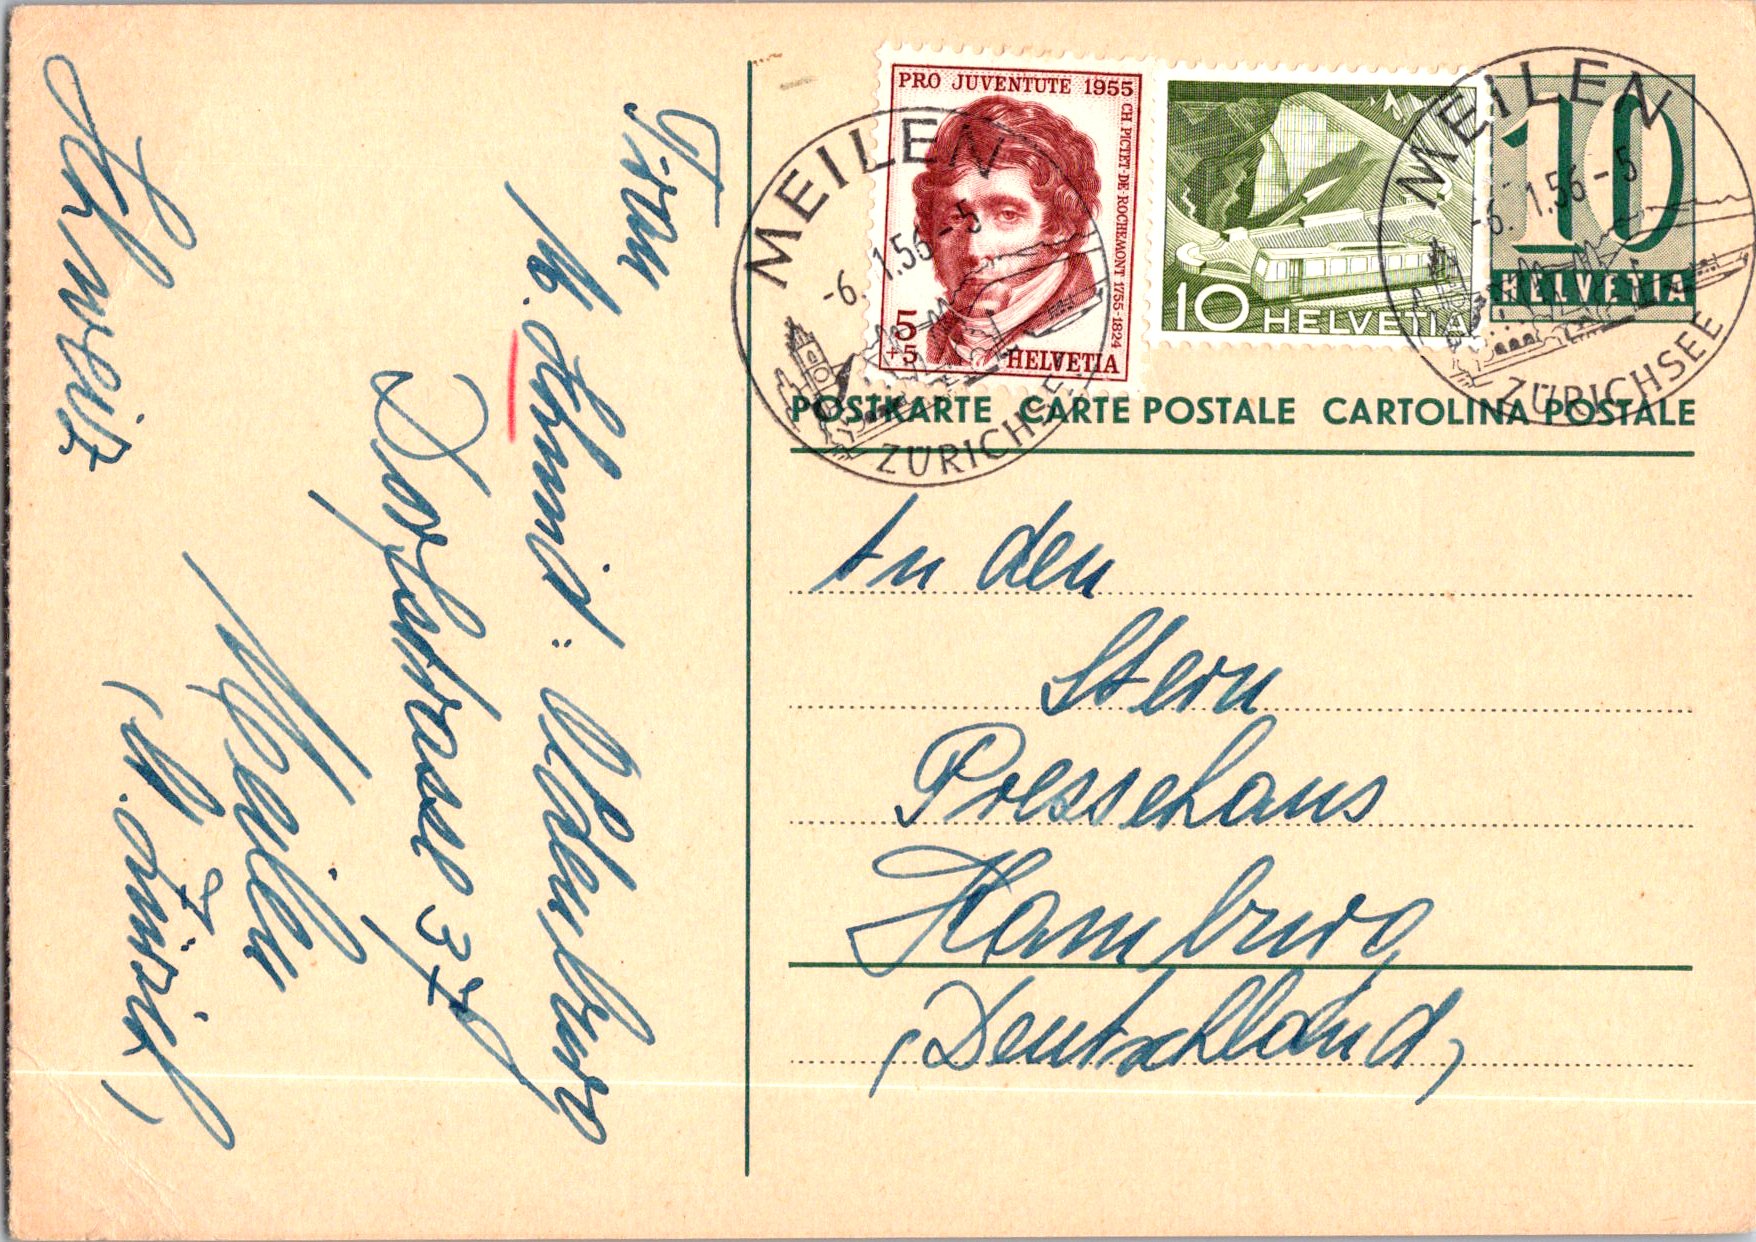 Frau
M. Schmid-Oldenburg
Dorfstrasse 37
Meilen
(Kt. Zürich)
Schweiz
PRO JUVENTUTE 1955
CH. PICTET-DE ROCHEMONT 1755-1824
5
+5
HELVETIA
10 HELVETIA
10
HELVETIA
MEILEN
-6. 1.56-5
ZÜRICHSEE
MEILEN
-6. 1.56-5
ZÜRICHSEE
POSTKARTE CARTE POSTALE CARTOLINA POSTALE
An den
Stern
Pressehaus
Hamburg
(Deutschland)